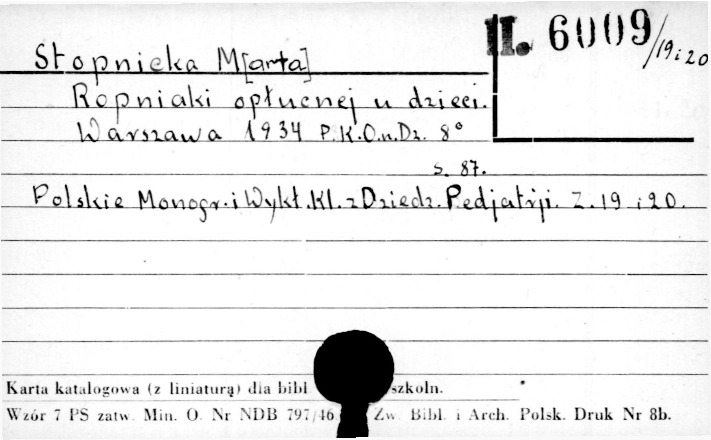 II. 6009/19 i 20
Stopnicka M[arta]
Ropniaki opłucnej u dzieci.
Warszawa 1934 P.K.O.n.Dz. 8°
s. 87.
Polskie Monogr. i Wykł. Kl. z Dziedz. Pedjatrji. Z. 19 i 20.
Karta katalogowa (z liniaturą) dla bibl szkoln.
Wzór 7 PS zatw. Min. O. Nr NDB 797/46 Zw. Bibl. i Arch. Polsk. Druk Nr 8b.